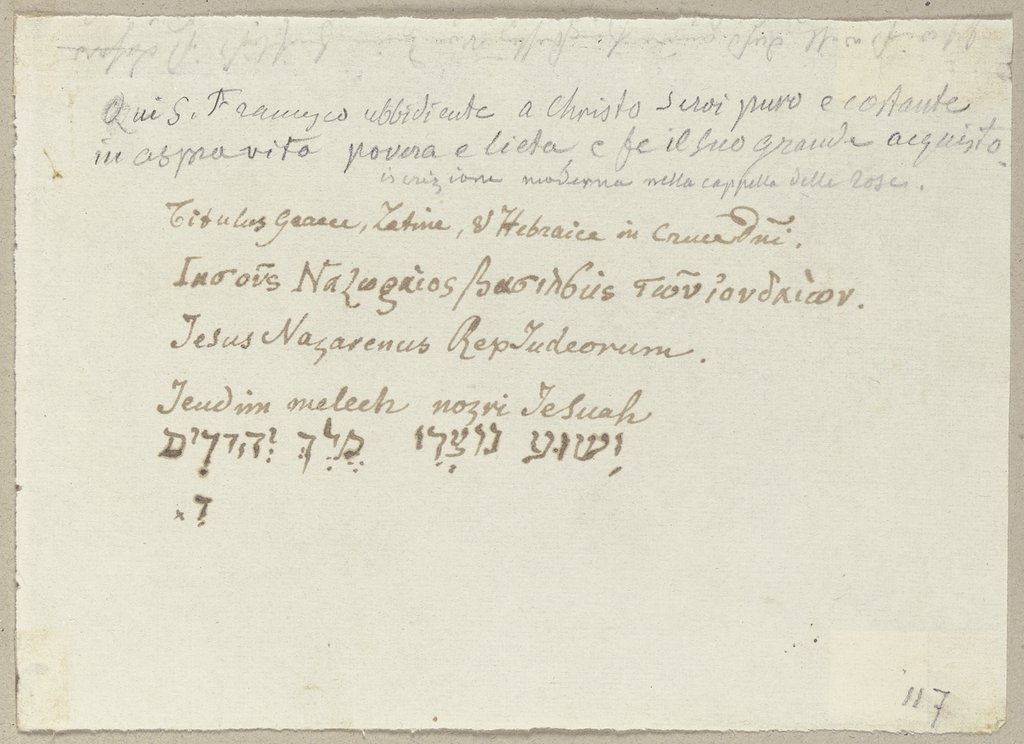 Qui S. Francesco ubbidiente a Christo servi puro e costante
in aspra vita povera e lieta, e fe il suo grande acquisto.
iscrizione moderna nella cappella delle rose.
Titulus Graece, Latine, & Hebraice in Cruce Dñi.
Ιησοῦς Ναζωραῖος βασιλεύς τῶν ἰουδαίων.
Jesus Nazarenus Rex Judeorum.
Jeudim melech nozri Jesuah
יָשוע נוצָרִי מֶלֶךְ יְהודִים
x דָ
117